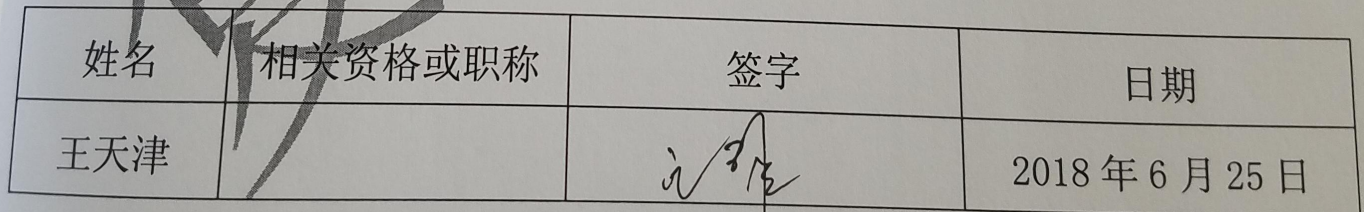 姓名 相关资格或职称 签字 日期
王天津 2018年6月25日